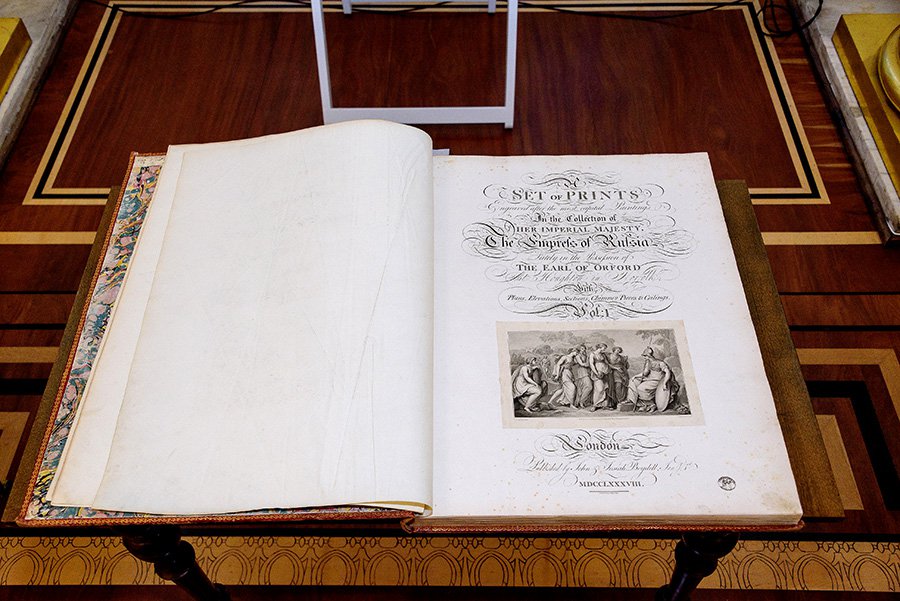 A
SET OF PRINTS
Engraved after the most capital Paintings
In the Collection of
HER IMPERIAL MAJESTY,
The Empreſs of Ruſsia
Lately in the Poſseſsion of
THE EARL OF ORFORD
At Houghton in Norfolk:
With
Plans, Elevations, Sections, Chimney Pieces & Ceilings.
Vol: I
London
Published by John & Josiah Boydell,
MDCCLXXXVIII.